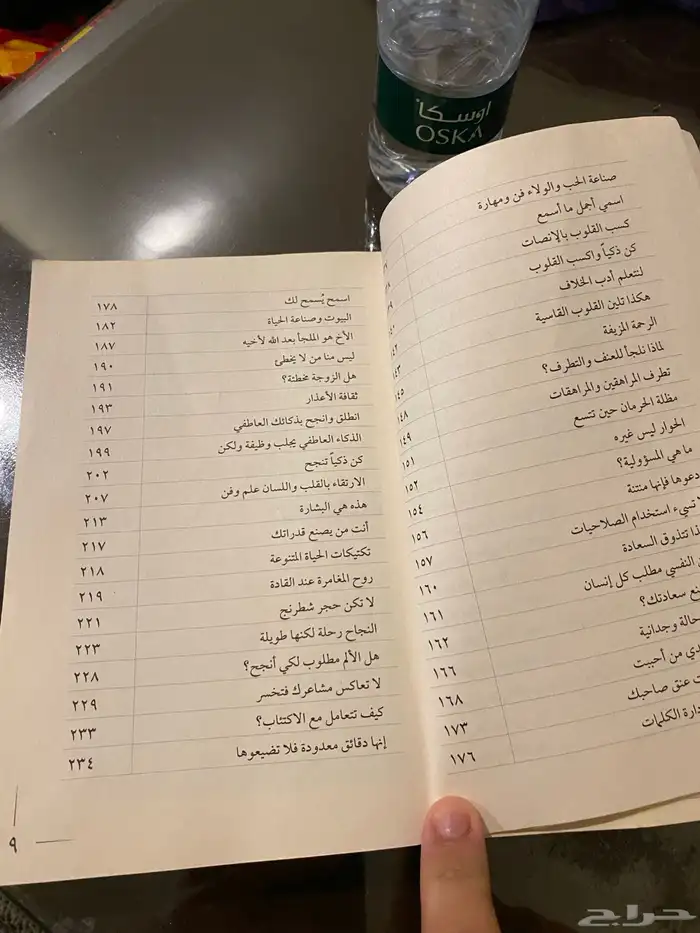 اوسكا
OSKA
صناعة الحب والولاء فن ومهارة
اسمي أجمل ما أسمع
كسب القلوب بالإنصات
كن ذكياً واكسب القلوب
لنتعلم أدب الخلاف
هكذا تلين القلوب القاسية
الرحمة المزيفة
لماذا نلجأ للعنف والتطرف؟ ١٤٣
تطرف المراهقين والمراهقات ١٤٥
مظلة الحرمان حين تتسع ١٤٨
الحوار ليس غيره ١٤٩
ما هي المسؤولية؟ ١٥١
دعوها فإنها منتنة ١٥٢
تسيء استخدام الصلاحيات ١٥٤
تتذوق السعادة ١٥٦
النفسي مطلب كل إنسان ١٥٧
سعادتك؟ ١٦٠
حالة وجدانية ١٦١
من أحببت ١٦٢
عنق صاحبك ١٦٦
الكلمات ١٦٨
١٧٣
١٧٦
اسمح يُسمح لك ١٧٨
البيوت وصناعة الحياة ١٨٢
الأخ هو الملجأ بعد الله لأخيه ١٨٧
ليس منا من لا يخطئ ١٩٠
هل الزوجة مخطئة؟ ١٩١
ثقافة الأعذار ١٩٣
انطلق وانجح بذكائك العاطفي ١٩٧
الذكاء العاطفي يجلب وظيفة ولكن ١٩٩
كن ذكياً تنجح ٢٠٢
الارتقاء بالقلب واللسان علم وفن ٢٠٧
هذه هي البشارة ٢١٣
أنت من يصنع قدراتك ٢١٧
تكتيكات الحياة المتنوعة ٢١٨
روح المغامرة عند القادة ٢١٩
لا تكن حجر شطرنج ٢٢١
النجاح رحلة لكنها طويلة ٢٢٣
هل الألم مطلوب لكي أنجح؟ ٢٢٨
لا تعاكس مشاعرك فتخسر ٢٢٩
كيف تتعامل مع الاكتئاب؟ ٢٣٣
إنها دقائق معدودة فلا تضيعوها ٢٣٤
٩
حراج